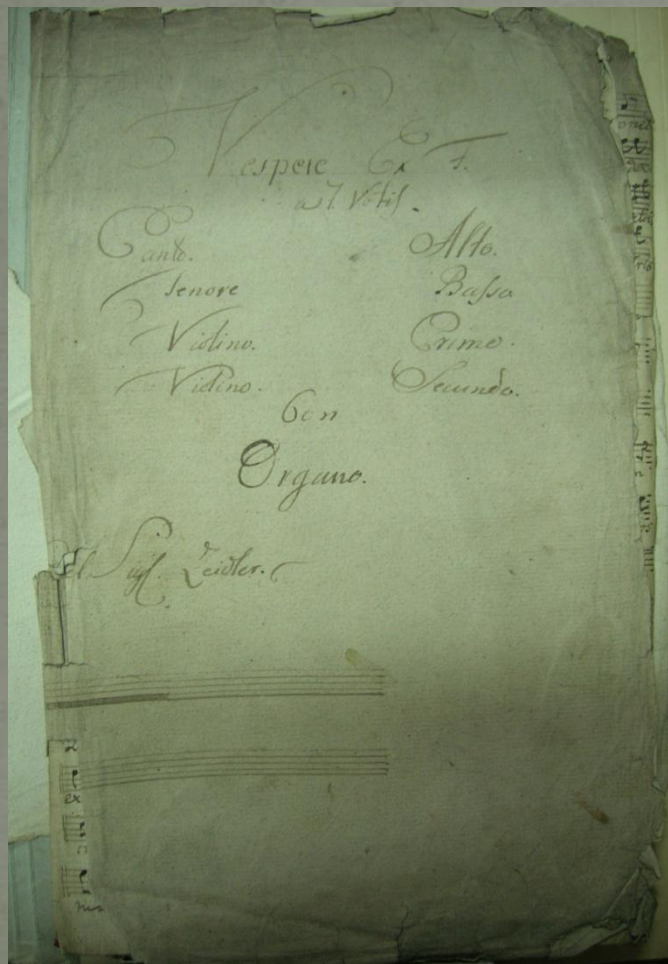 Vespere Ex F.
a 7. Votis.
Canto. Alto.
Tenore Basso
Violino. Primo.
Violino. Secundo.
Con
Organo.
Del Sigl. Zeidler.
ex